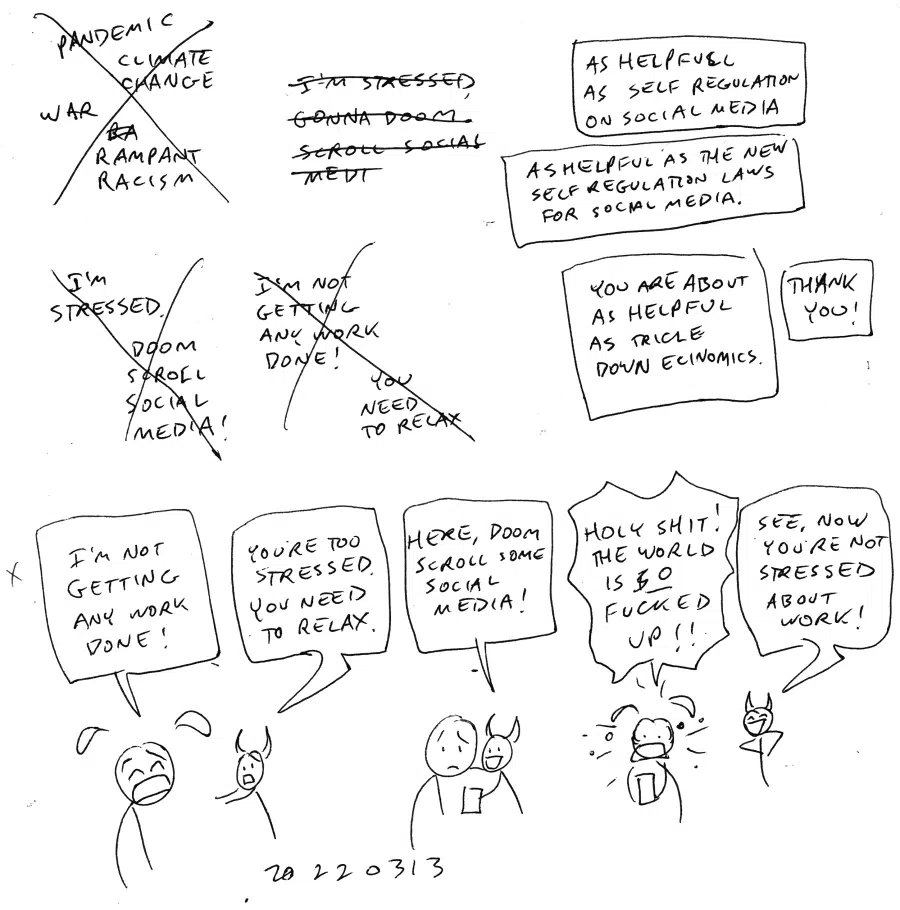 PANDEMIC
CLIMATE
CHANGE
WAR
RA
RAMPANT
RACISM
I'M STRESSED,
GONNA DOOM
SCROLL SOCIAL
MEDI
AS HELPFULL
AS SELF REGULATION
ON SOCIAL MEDIA
AS HELPFUL AS THE NEW
SELF REGULATION LAWS
FOR SOCIAL MEDIA.
I'M
STRESSED.
DOOM
SCROLL
SOCIAL
MEDIA!
I'M NOT
GETTING
ANY WORK
DONE!
YOU
NEED
TO RELAX
YOU ARE ABOUT
AS HELPFUL
AS TRICLE
DOWN ECINOMICS.
THANK
YOU!
X
I'M NOT
GETTING
ANY WORK
DONE!
YOU'RE TOO
STRESSED.
YOU NEED
TO RELAX.
HERE, DOOM
SCROLL SOME
SOCIAL
MEDIA!
HOLY SHIT!
THE WORLD
IS SO
FUCKED
UP!!
SEE, NOW
YOU'RE NOT
STRESSED
ABOUT
WORK!
20220313